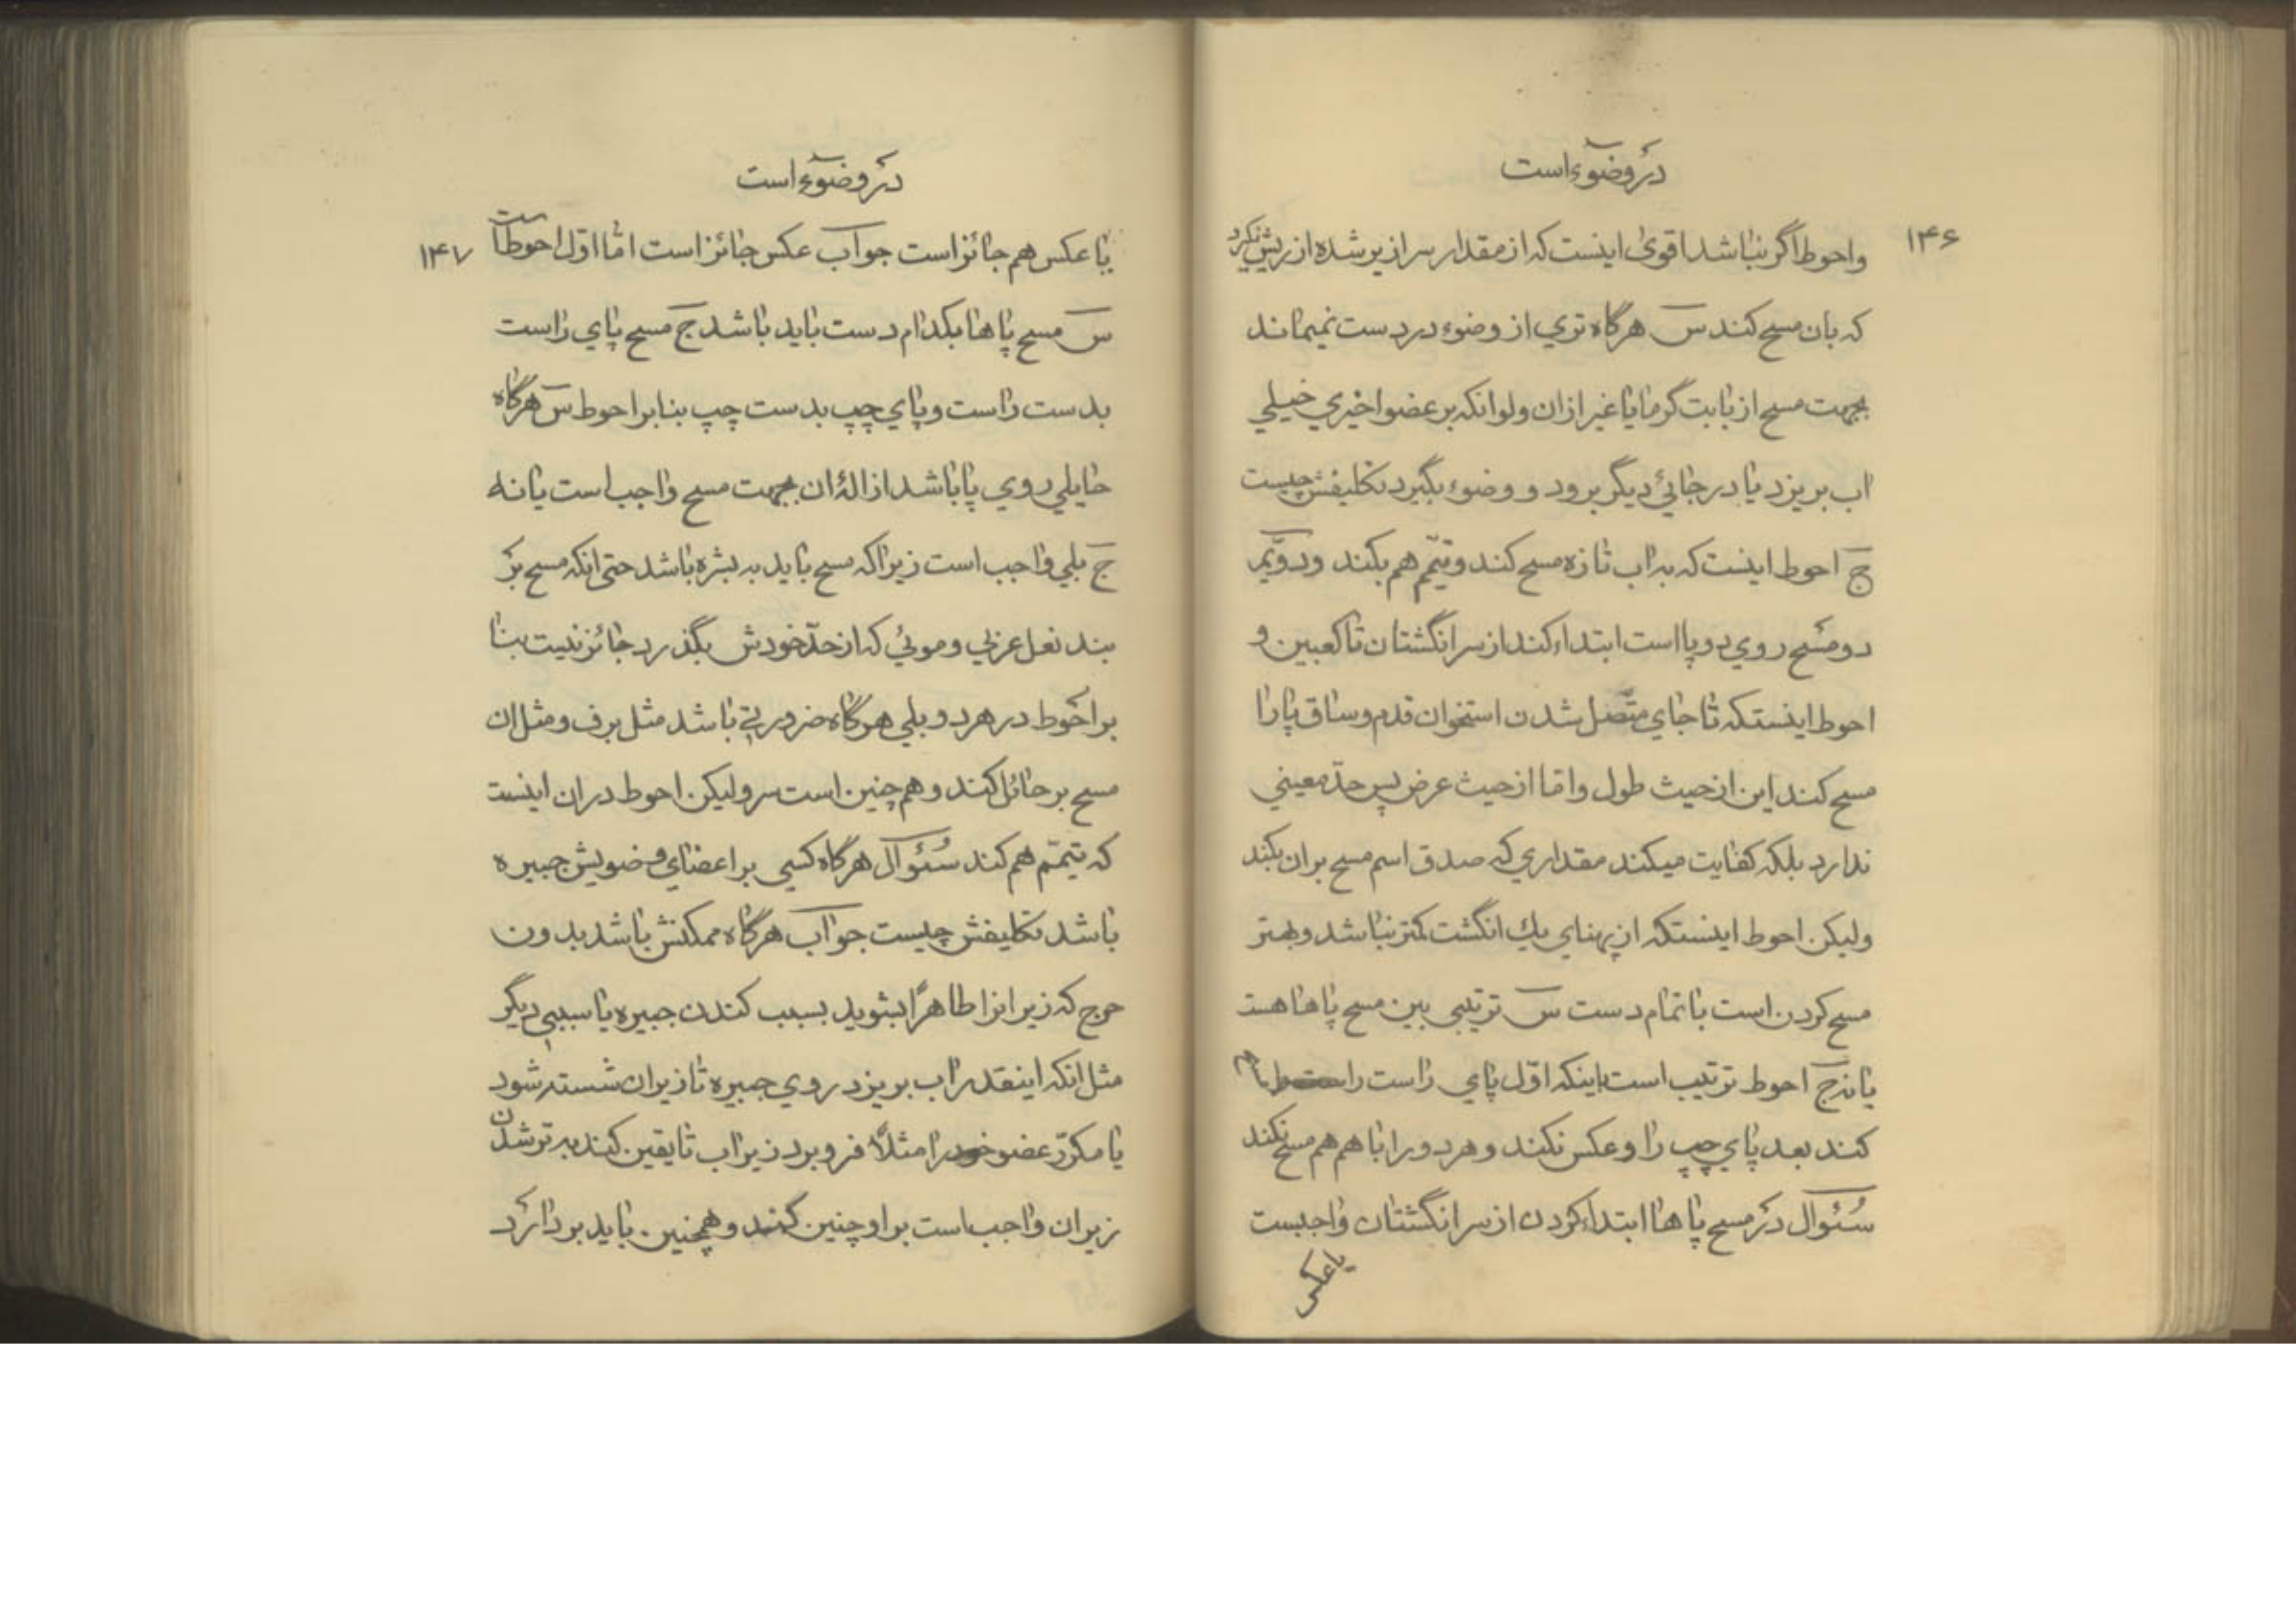 در وضوء است
۱۴۶
واحوط اگر نباشد اقوی اینست که از مقدار سرازیر شده از ریش نگیرد
که بان مسح کند س هرگاه تری از وضوء در دست نمیماند
بجهت مسح از بابت گرما یا غیر ازان ولوانکه بر عضو اخیری خیلی
اب بریزد یا در جائی دیگر برود و وضوء بگیرد تکلیفش چیست
ج احوط اینست که به اب تازه مسح کند و تیمّم هم بکند و دویّم
دو مسح روی دو پا است ابتداء کند از سر انگشتان تا کعبین و
احوط اینستکه تا جای متّصل شدن استخوان قدم و ساق پا را
مسح کند این از حیث طول و امّا از حیث عرض پس حدّ معینی
ندارد بلکه کفایت میکند مقداری که صدق اسم مسح بران بکند
ولیکن احوط اینستکه از پهنای یك انگشت کمتر نباشد و بهتر
مسح کردن است با تمام دست س ترتیبی بین مسح پاها هست
یا نه ج احوط ترتیب است باینکه اوّل پای راست را مسح
کند بعد پای چپ را و عکس نکند و هر دو را با هم هم مسح نکند
سُئوال در مسح پاها ابتداء کردن از سر انگشتان واجبست
یا عکس
در وضوء است
۱۴۷
یا عکس هم جائز است جواب عکس جائز است امّا اوّل احوط است
س مسح پاها بکدام دست باید باشد ج مسح پای راست
بدست راست و پای چپ بدست چپ بنابر احوط س هرگاه
حایلی روی پا باشد ازالهٔ ان بجهت مسح واجب است یا نه
ج بلی واجب است زیرا که مسح باید به بشره باشد حتی انکه مسح بر
بند نعل عربی و موئی که از حدّ خودش بگذرد جائز نیست بنا
بر احوط در هر دو بلی هرگاه ضرورتی باشد مثل برف و مثل ان
مسح بر حائل کند و هم چنین است سر ولیکن احوط دران اینست
که تیمّم هم کند سُئوال هرگاه کسی بر اعضای وضویش جبیره
باشد تکلیفش چیست جواب هرگاه ممکنش باشد بدون
حرج که زیر انرا طاهرًا بشوید بسبب کندن جبیره یا سببی دیگر
مثل انکه اینقدر اب بریزد روی جبیره تا زیر ان شسته شود
یا مکرّر عضو خود را مثلًا فرو برد زیر اب تا یقین کند به تر شدن
زیر ان واجب است بر او چنین کند و همچنین باید بردارد